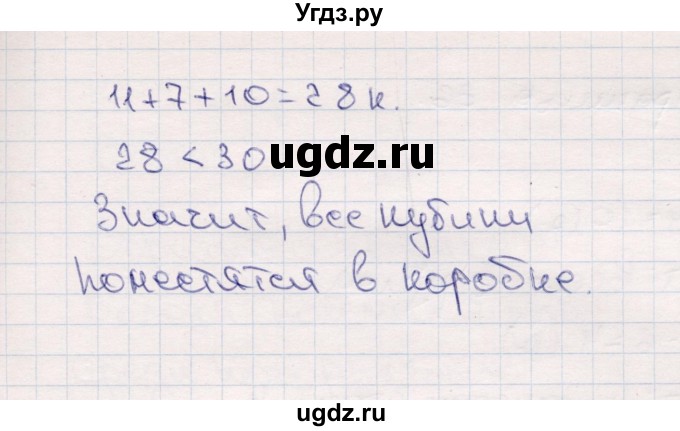 Угдз.ру
11+7+10=28 к.
28 < 30
ugdz.ru
Значит, все кубики
поместятся в коробке.
ugdz.ru